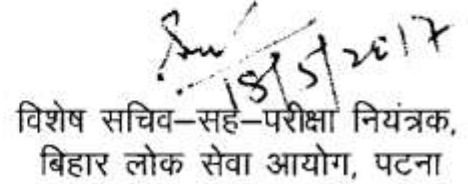 18/5/2017
विशेष सचिव–सह–परीक्षा नियंत्रक,
बिहार लोक सेवा आयोग, पटना